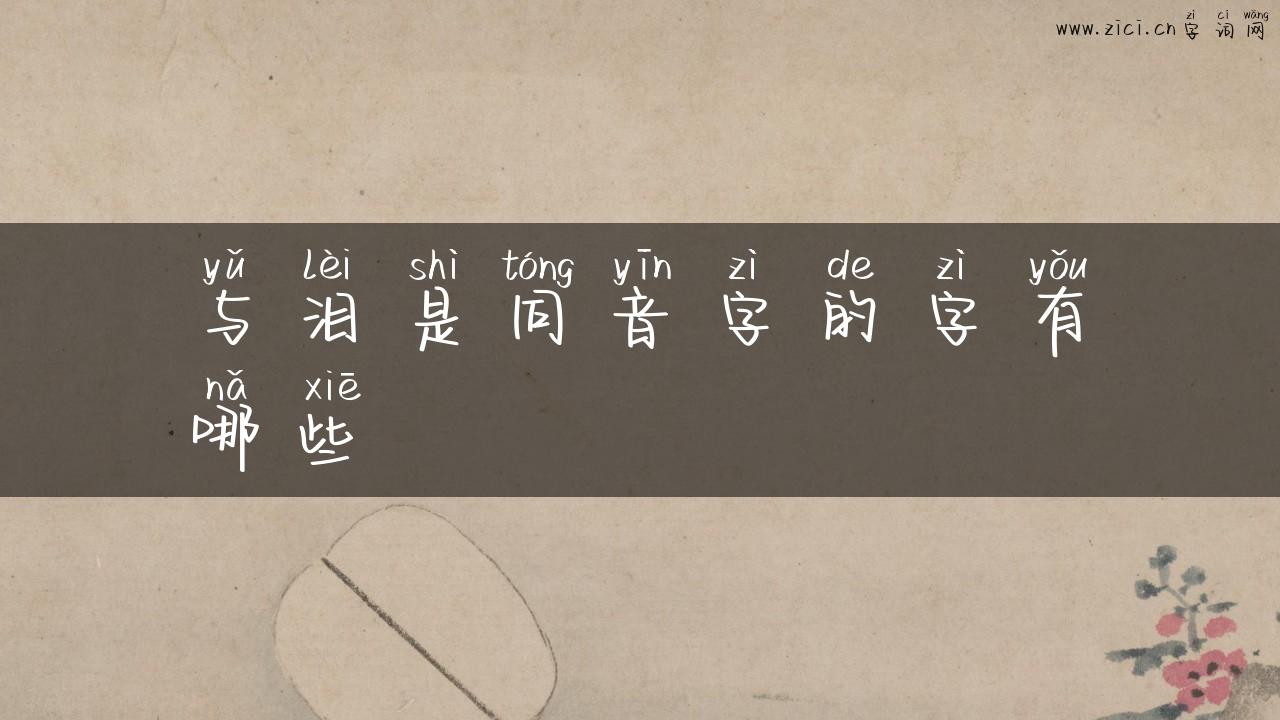 zì cí wǎng
www.zici.cn 字 词 网
yǔ lèi shì tóng yīn zì de zì yǒu
与 泪 是 同 音 字 的 字 有
nǎ xiē
哪 些